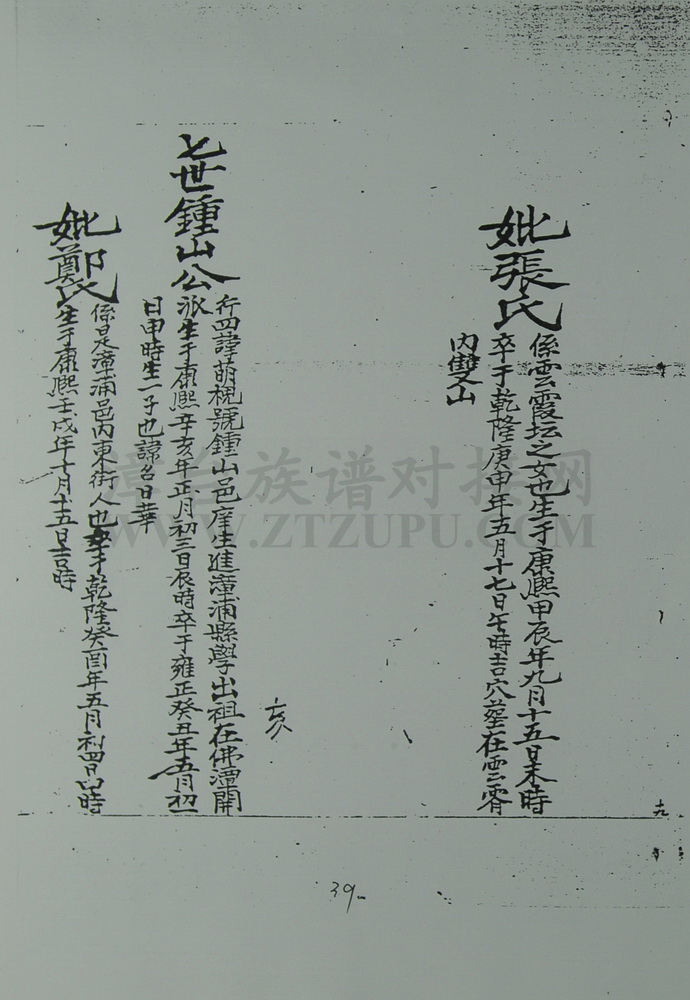 妣張氏
係雲霞坛之女也生于康熙甲辰年九月十五日未時
卒于乾隆庚申年五月十七日午時吉穴墓在雲霄
内雙山
亥
七世鍾山公
行四諱萌槐號鍾山邑庠生進漳浦縣學出祖在佛潭開
派生于康熙辛亥年正月初三日辰時卒于雍正癸丑年五月初一
日申時生一子也諱名日華
妣鄭氏
係是漳浦邑内東街人也卒于乾隆癸酉年五月初四日時
生于康熙壬戌年十月十五日吉時
十九
39
漳台族谱对接网
WWW.ZTZUPU.COM